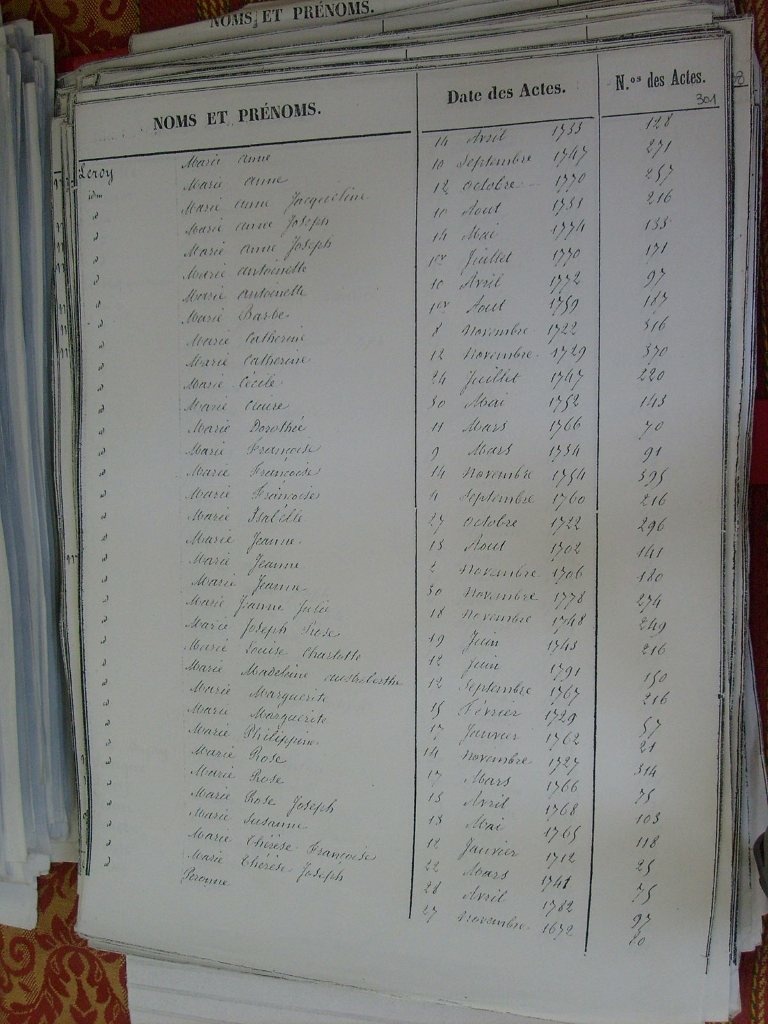 NOMS ET PRÉNOMS.
NOMS ET PRÉNOMS. Date des Actes. N.os des Actes.
301
Leroy Marie anne 14 Avril 1733 128
idm Marie anne 10 Septembre 1747 271
" Marie anne Jacqueline 12 octobre 1770 257
" Marie anne Joseph 10 Aout 1733 216
" Marie anne Joseph 14 Mai 1774 133
" Marie antoinette 1er Juillet 1770 171
" Marie antoinette 10 Avril 1772 97
" Marie Barbe 1er Aout 1759 187
" Marie Catherine 8 Novembre 1722 316
" Marie Catherine 12 novembre 1729 370
" Marie Cécile 24 Juillet 1747 220
" Marie Claire 30 Mai 1752 143
" Marie Dorothée 11 Mars 1766 70
" Marie Françoise 9 Mars 1734 91
" Marie Françoise 14 Novembre 1754 395
" Marie Françoise 4 Septembre 1760 216
" Marie Isabelle 27 octobre 1722 296
" Marie Jeanne 13 Aout 1702 141
" Marie Jeanne 2 Novembre 1706 180
" Marie Jeanne 30 Novembre 1778 274
" Marie Jeanne Julie 18 Novembre 1748 249
" Marie Joseph Rose 19 Juin 1743 216
" Marie Louise Charlotte 12 Juin 1791 150
" Marie Madeleine austreberthe 12 Septembre 1767 216
" Marie Marguerite 15 Février 1729 57
" Marie Marguerite 17 Janvier 1762 21
" Marie Philippine 14 Novembre 1727 314
" Marie Rose 17 Mars 1766 75
" Marie Rose 13 Avril 1768 103
" Marie Rose Joseph 13 Mai 1765 118
" Marie Susanne 12 Janvier 1712 25
" Marie Thérèse Françoise 22 Mars 1741 75
" Marie Thérèse Joseph 28 Avril 1782 97
" Peronne 27 Novembre 1672 80